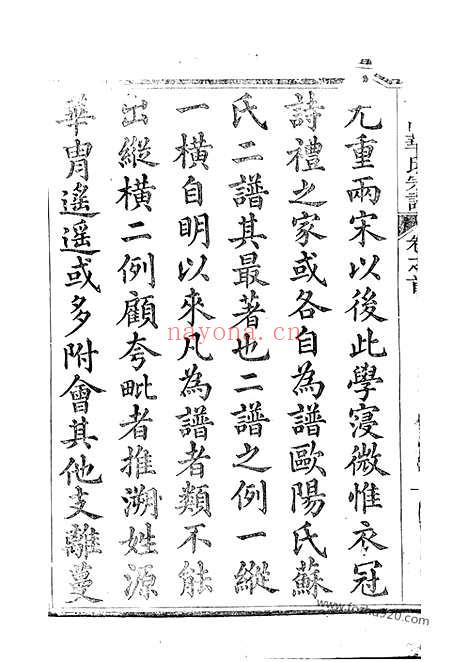 尤重兩宋以後此學寖微惟衣冠
詩禮之家或各自為譜歐陽氏蘇
氏二譜其最著也二譜之例一縱
一橫自明以來凡為譜者類不能
出縱橫二例顧夸毗者推溯姓源
華胄遙遙或多附會其他支離蔓
華氏宗譜
卷之首
nayona.cn
www.fozhu920.com